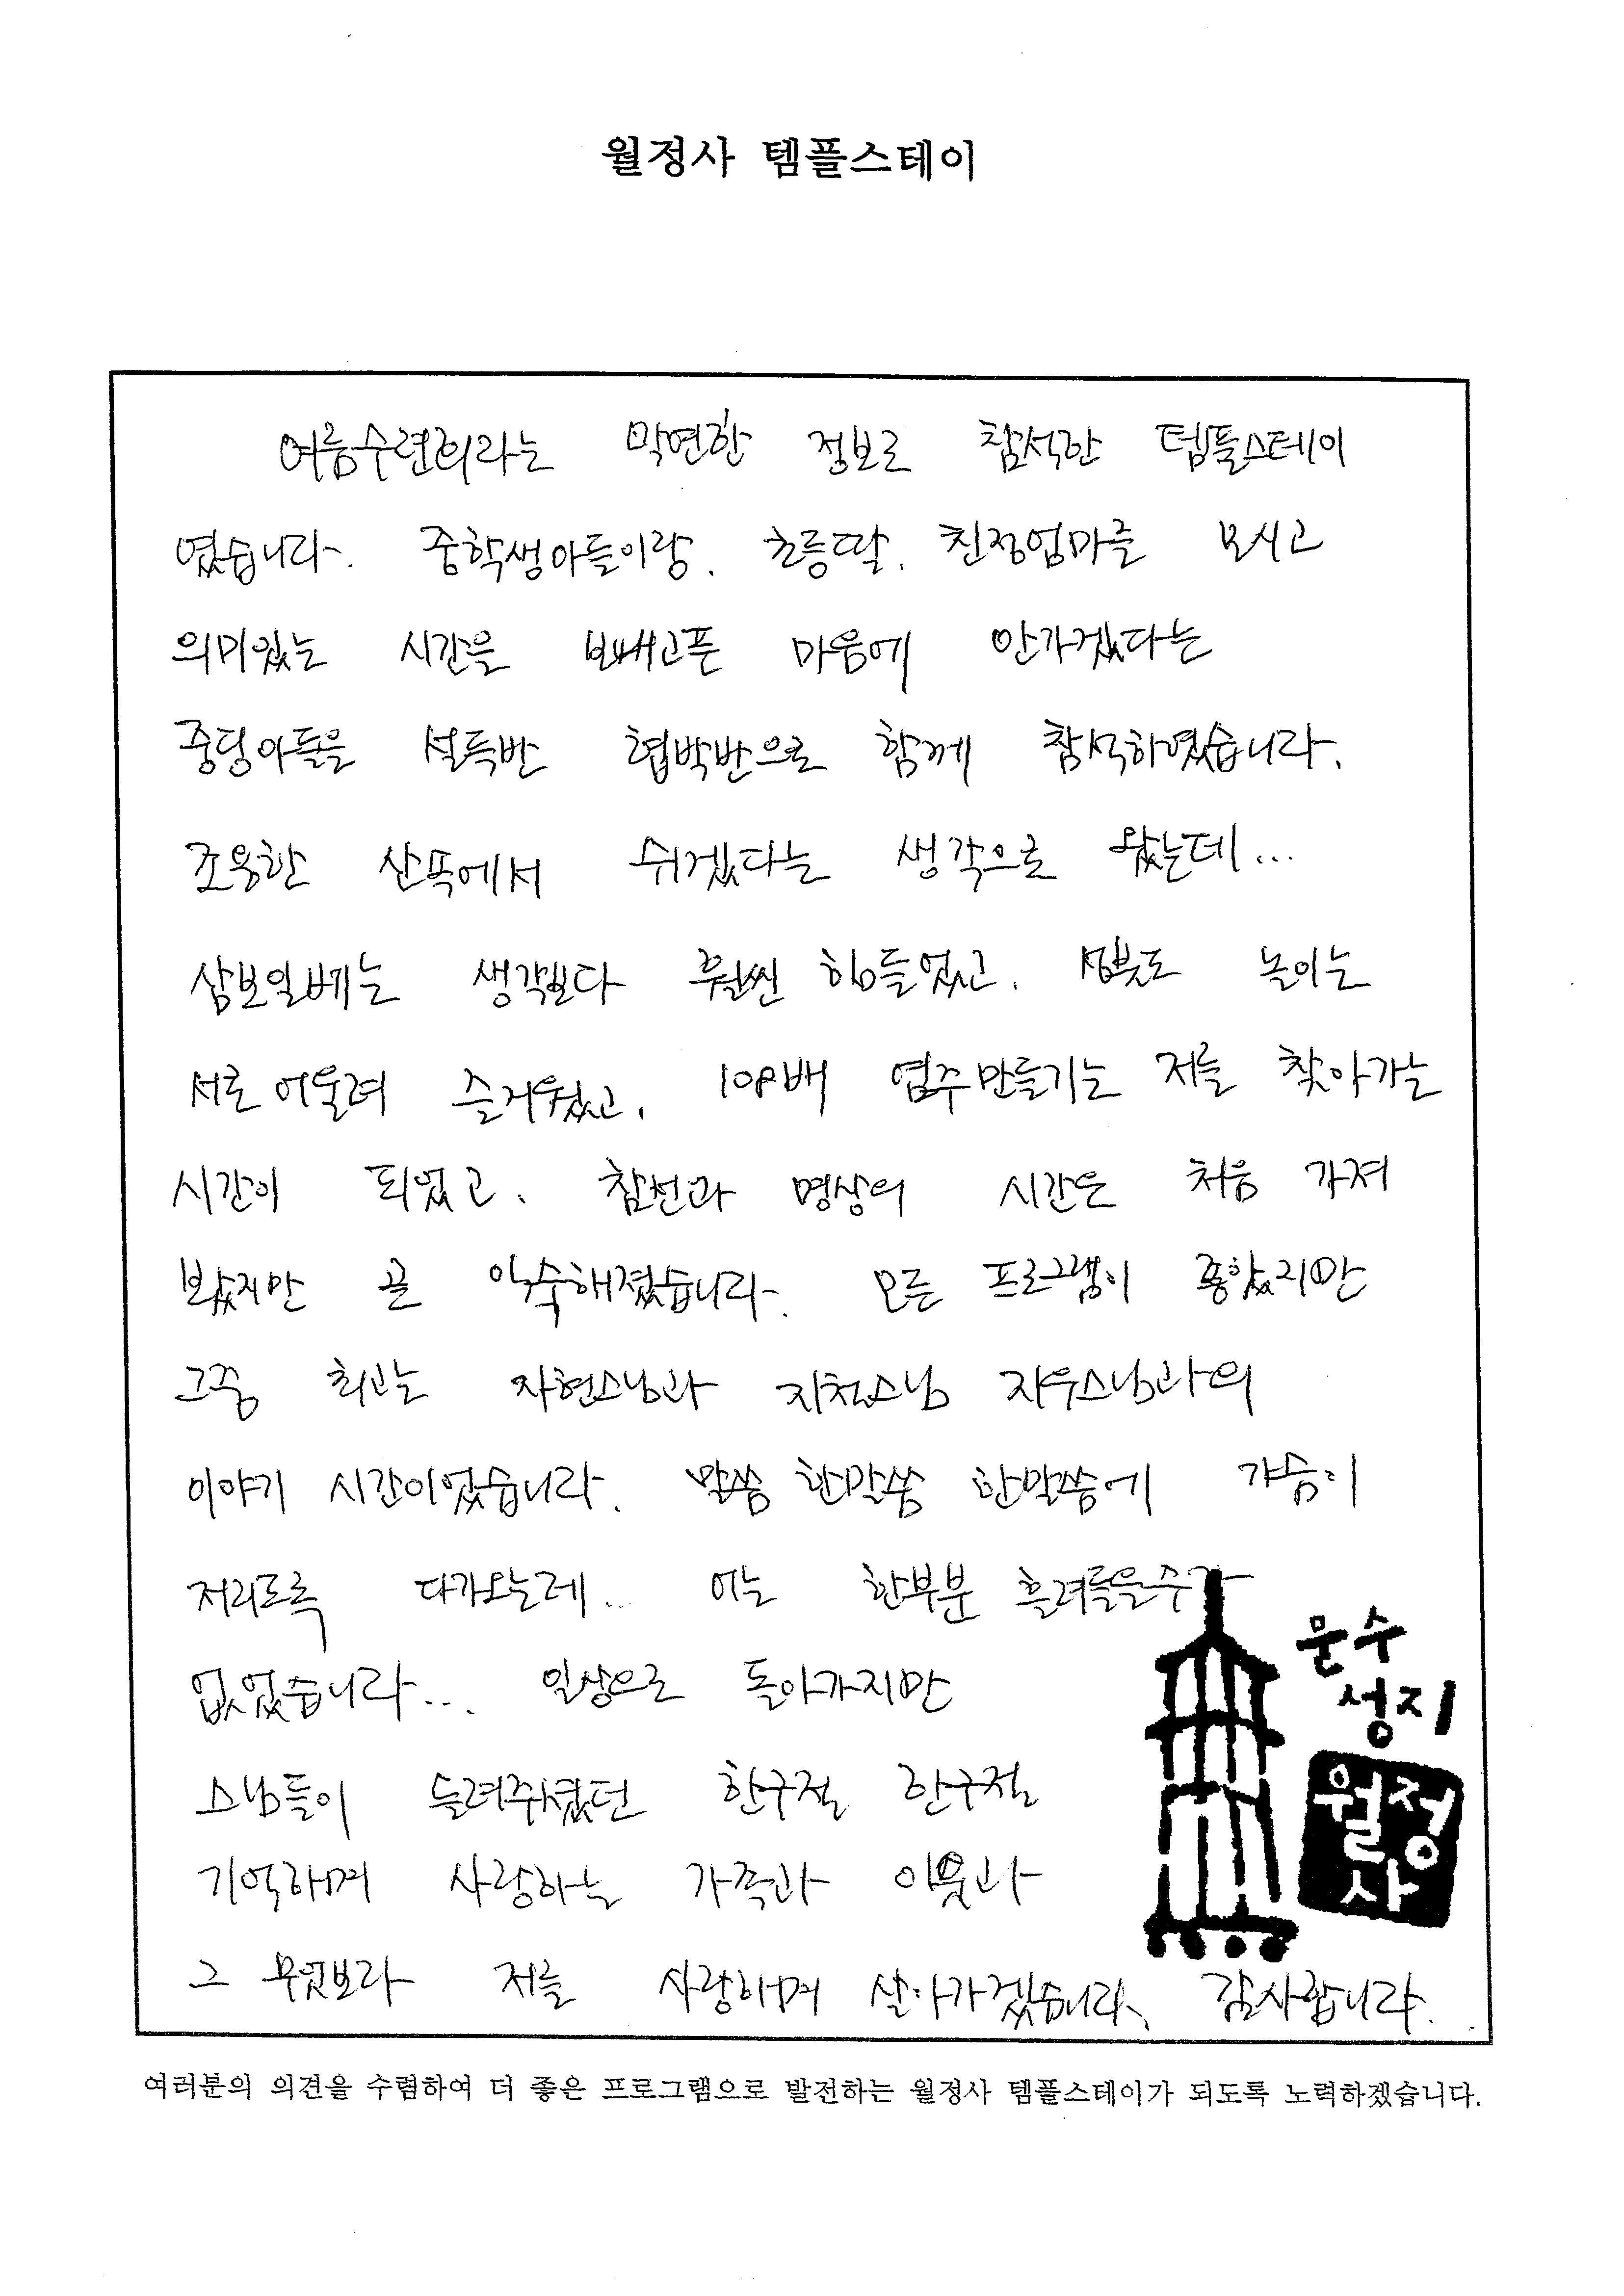 월정사 템플스테이
여름수련회라는 막연한 정보로 참석한 템플스테이
였습니다. 중학생아들이랑. 초등딸. 친정엄마를 모시고
의미있는 시간을 보내고픈 마음에 안가겠다는
중딩아들을 설득반 협박반으로 함께 참석하였습니다.
조용한 산속에서 쉬겠다는 생각으로 왔는데...
삼보일배는 생각보다 훨씬 힘들었고. 놀이는
서로 어울려 즐거웠고. 108배 염주만들기는 저를 찾아가는
시간이 되었고. 참선과 명상의 시간은 처음 가져
봤지만 곧 익숙해졌습니다. 모든 프로그램이 좋았지만
그중 최고는 자현스님과 지천스님 자우스님과의
이야기 시간이었습니다. 말씀 한말씀 한말씀에 가슴이
저리도록 다가오는데... 어느 한부분 흘려들을수가
없었습니다... 일상으로 돌아가지만
스님들이 들려주셨던 한구절 한구절
기억하며 사랑하는 가족과 이웃과
그 무엇보다 저를 사랑하며 살아가겠습니다. 감사합니다.
문수
성지
월정
사
여러분의 의견을 수렴하여 더 좋은 프로그램으로 발전하는 월정사 템플스테이가 되도록 노력하겠습니다.